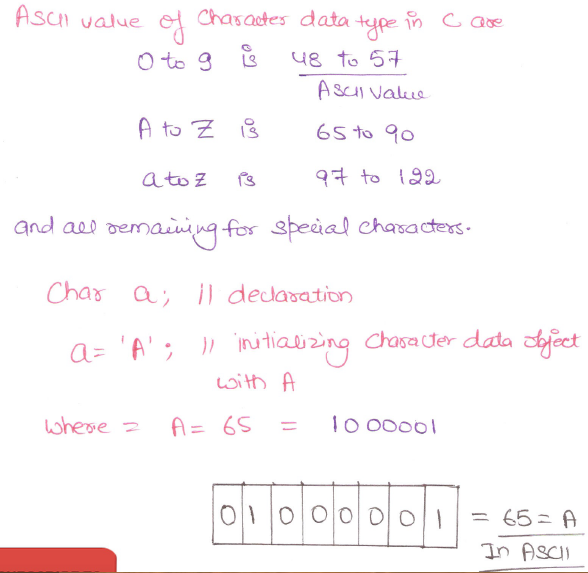 ASCII value of Character data type in C are
0 to 9 is 48 to 57
ASCII Value
A to Z is 65 to 90
a to z is 97 to 122
and all remaining for special characters.
Char a; // declaration
a= 'A'; // initializing character data object
with A
where = A= 65 = 1000001
0 1 0 0 0 0 0 1 = 65 = A
In ASCII